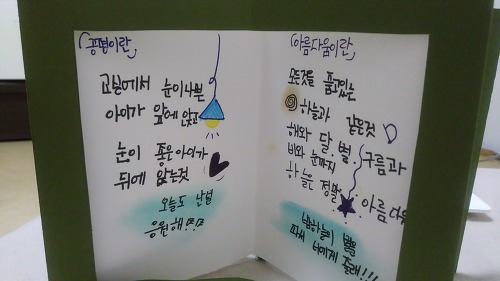 공평이란
교실에서 눈이나쁜
아이가 앞에 앉고
눈이 좋은아이가
뒤에 앉는것
오늘도 난널
응원해!!!
아름다움이란
모든것을 품고있는
하늘과 같은것
해와 달, 별, 구름과
비와 눈까지
하늘은 정말
아름다
밤하늘의 별을
따서 너에게 줄래!!!